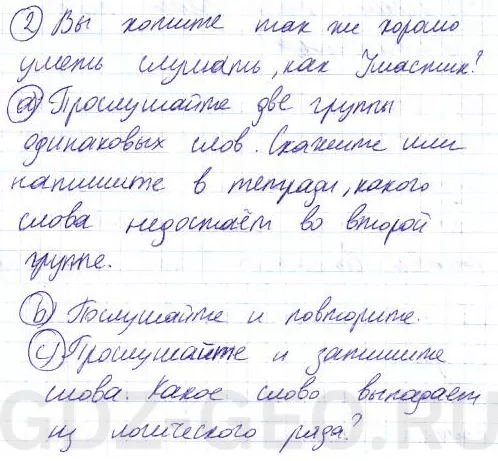 2) Вы хотите так же хорошо
уметь слушать, как Ушастик?
a) Прослушайте две группы
одинаковых слов. Скажите или
напишите в тетради, какого
слова недостаёт во второй
группе.
b) Послушайте и повторите.
c) Прослушайте и запишите
слова. Какое слово выпадает
из логического ряда?
GDZ-GEO.RU